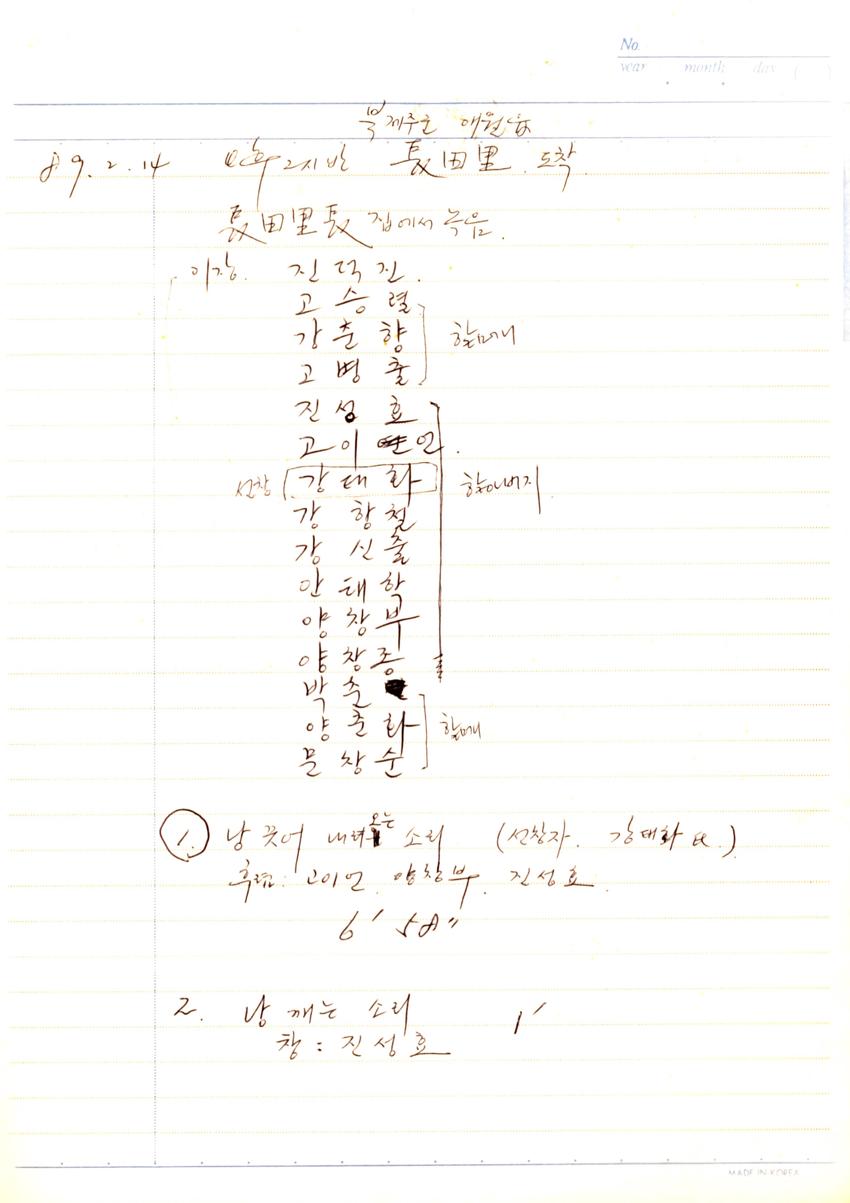 No.
year month day ( )
북제주군 애월읍
89. 2. 14 오후 2시 반 長田里. 도착.
長田里長 집에서 녹음.
이장. 진덕진.
고승렬
강춘향 할머니
고병출
진성효
고이언.
선창 강태화 할아버지.
강항철
강신출
안태학
양창부
양창종
박춘
양춘화 할머니
문창순
1. 낭 끗어 내려오는 소리 (선창자. 강태화 氏.)
후렴: 고이언. 양창부. 진성효.
6′ 58″
2. 낭 깨는 소리 1′
창 : 진성효
MADE IN KOREA